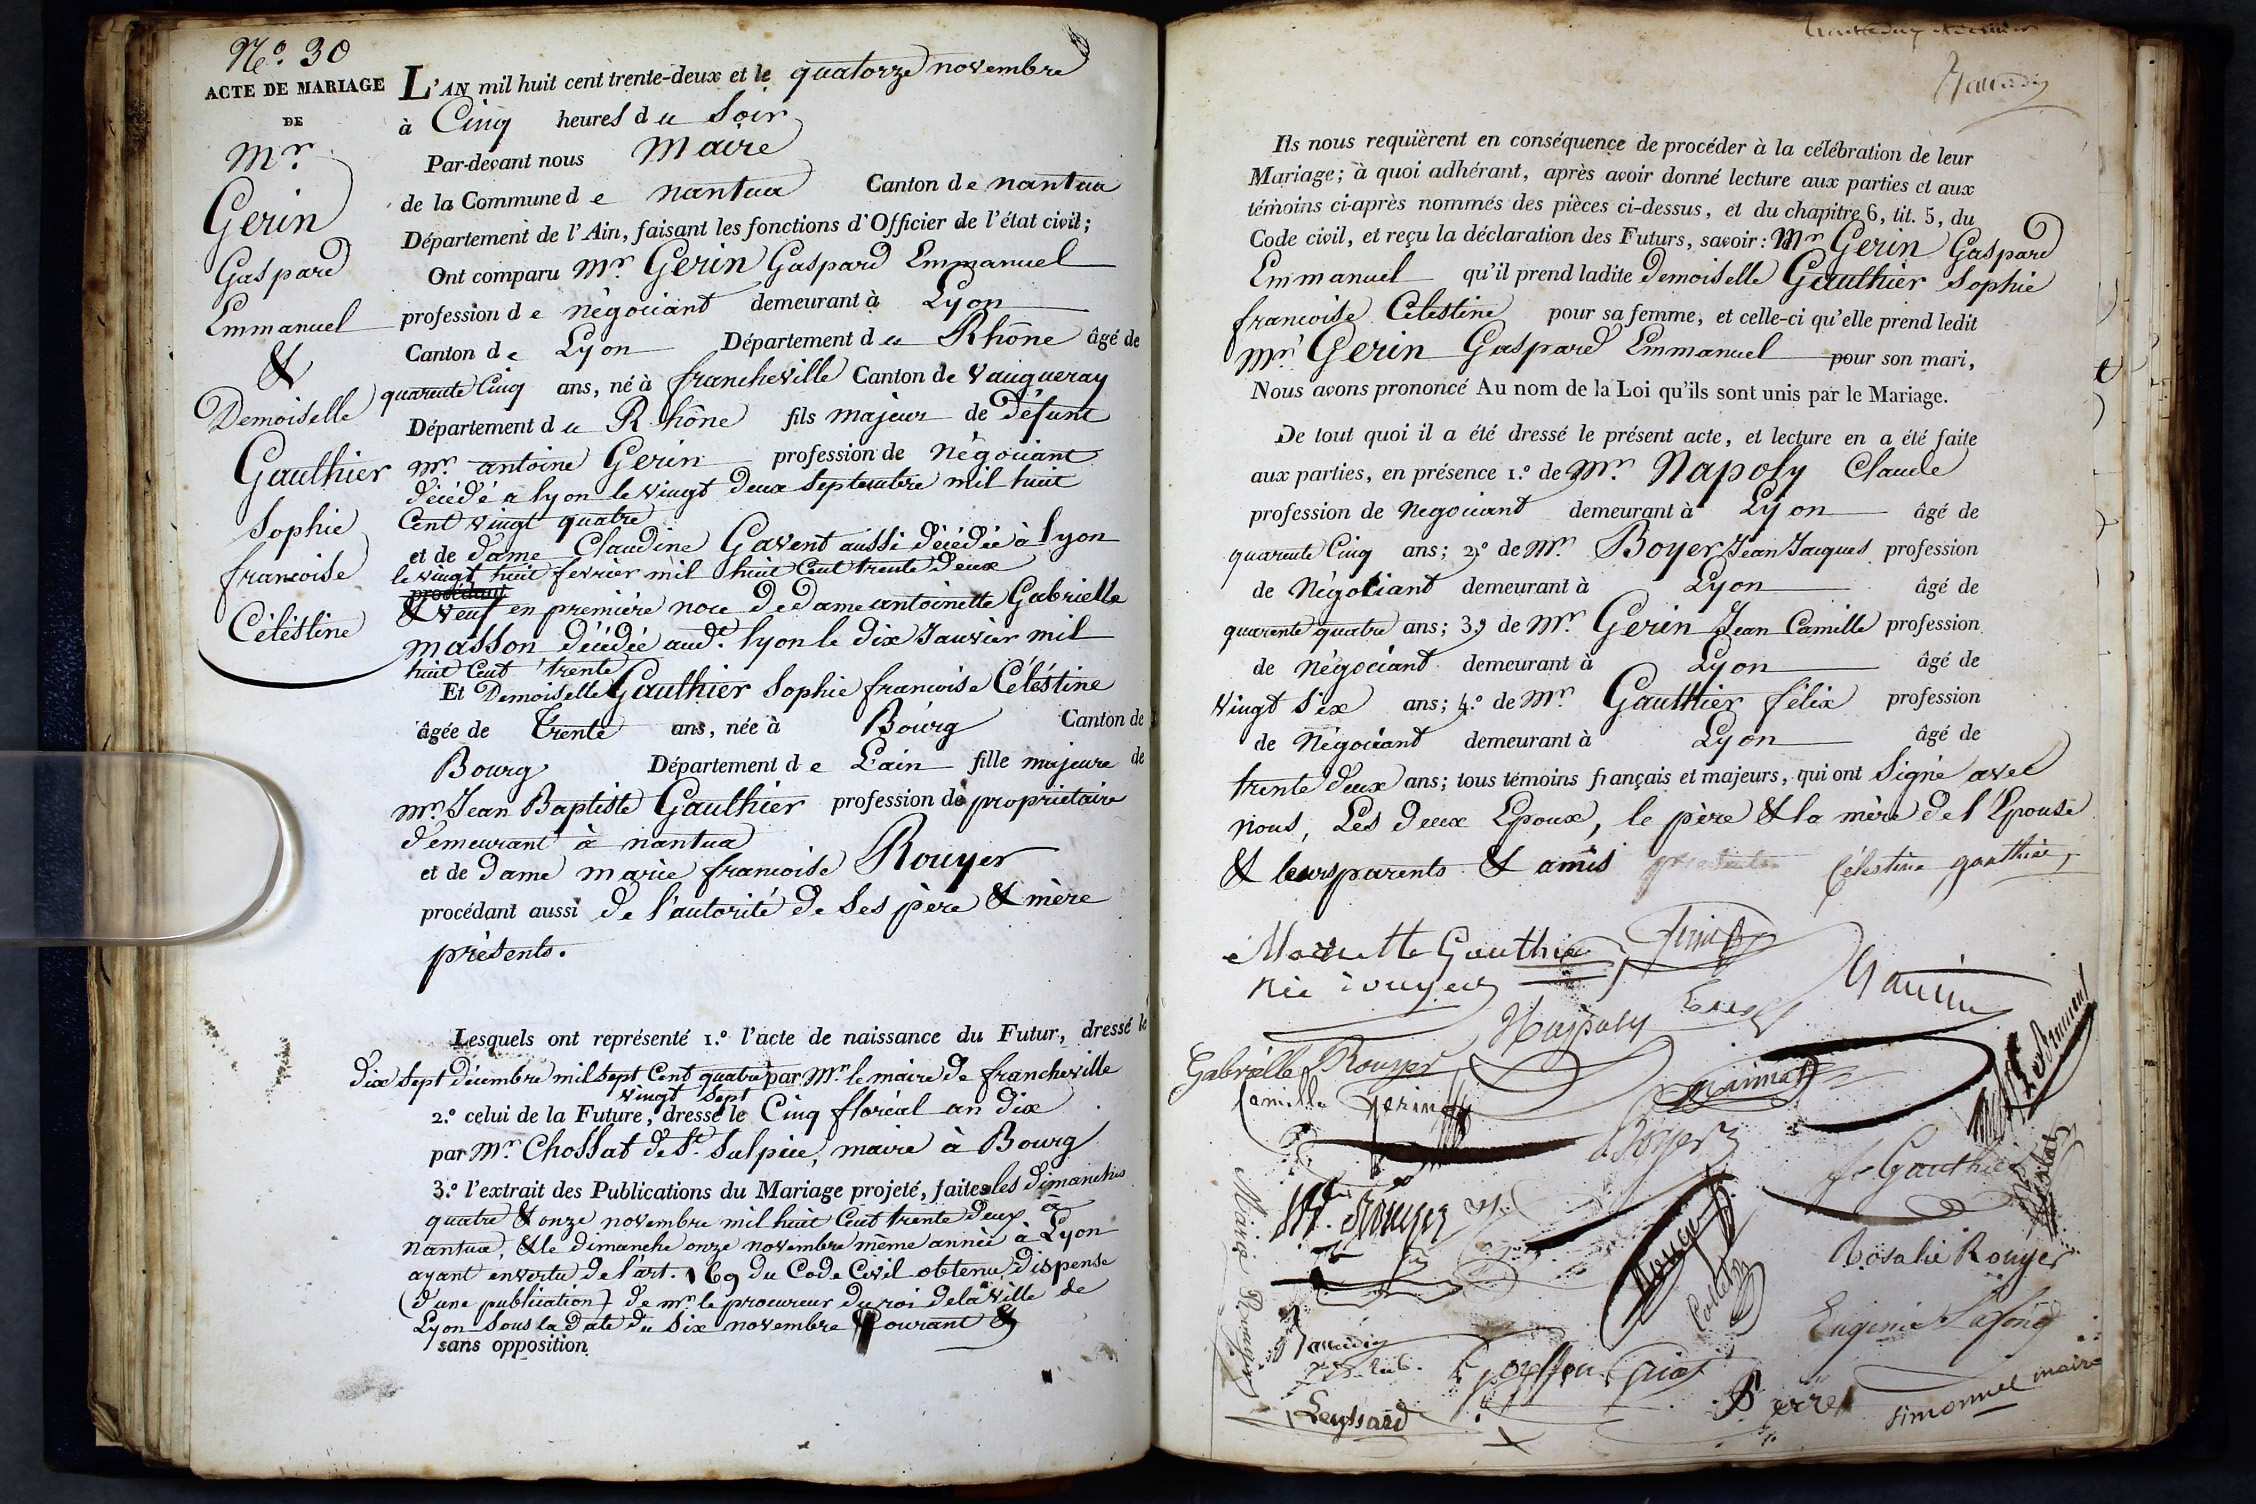 N.o 30
ACTE DE MARIAGE
DE
Mr.
Gerin
Gaspard
Emmanuel
&
Demoiselle
Gauthier
Sophie
francoise
Céléstine
L'AN mil huit cent trente-deux et le quatorze novembre
à Cinq heures du Soir
Par-devant nous Maire
de la Commune de nantua Canton de nantua
Département de l'Ain, faisant les fonctions d'Officier de l'état civil;
Ont comparu Mr. Gerin Gaspard Emmanuel
profession de négociant demeurant à Lyon
Canton de Lyon Département du Rhône âgé de
quarente Cinq ans, né à francheville Canton de Vaugueray
Département du Rhône fils majeur de défunt
mr. antoine Gerin profession de Négociant
décédé a lyon le vingt deux Septembre mil huit
Cent vingt quatre
et de dame Claudine Gavent aussi décédée à lyon
le vingt huit fevrier mil huit Cent trente deux
procédant
& veuf en première noce de dame antoinette Gabrielle
masson décédée aud.t lyon le dix Janvier mil
huit Cent trente
Et Demoiselle Gauthier Sophie francoise Céléstine
âgée de trente ans, née à Bourg Canton de
Bourg Département de L'ain fille majeure de
mr. Jean Baptiste Gauthier profession de proprietaire
demeurant à nantua
et de dame marie francoise Rouyer
procédant aussi de l'autorité de Ses père & mère
présents.
Lesquels ont représenté 1.o l'acte de naissance du Futur, dressé le
dix Sept décembre mil Sept Cent quatre par Mr. le maire de francheville
vingt Sept
2.o celui de la Future, dressé le Cinq floréal an dix
par Mr. Chossat de St. Sulpice, maire à Bourg
3.o l'extrait des Publications du Mariage projeté, faites les dimanches
quatre & onze novembre mil huit Cent trente deux à
nantua, & le dimanche onze novembre même année à Lyon
ayant envertu de l'art. 169 du Code Civil obtenu dispense
(d'une publication) de mr. le procureur du roi de la Ville de
Lyon Sous la date du Six novembre Courant &
sans opposition
Ils nous requièrent en conséquence de procéder à la célébration de leur
Mariage; à quoi adhérant, après avoir donné lecture aux parties et aux
témoins ci-après nommés des pièces ci-dessus, et du chapitre 6, tit. 5, du
Code civil, et reçu la déclaration des Futurs, savoir: Mr Gerin Gaspard
Emmanuel qu'il prend ladite demoiselle Gauthier Sophie
francoise Célestine pour sa femme, et celle-ci qu'elle prend ledit
Mr. Gerin Gaspard Emmanuel pour son mari,
Nous avons prononcé Au nom de la Loi qu'ils sont unis par le Mariage.
De tout quoi il a été dressé le présent acte, et lecture en a été faite
aux parties, en présence 1.o de Mr. Napoly Claude
profession de Negociant demeurant à Lyon âgé de
quarente Cinq ans; 2.o de Mr. Boyer Jean Jacques profession
de Négotiant demeurant à Lyon âgé de
quarente quatre ans; 3.o de Mr. Gerin Jean Camille profession
de Négociant demeurant à Lyon âgé de
Vingt Six ans; 4.o de Mr Gauthier félix profession
de Négociant demeurant à Lyon âgé de
trente deux ans; tous témoins français et majeurs, qui ont Signé avec
nous, Les deux Epoux, le père & la mère de l'Epouse
& leurs parents & amis
Célestine gauthier
Gauthier
née rouyer
Napoly
Gabrielle Rouyer
Camille Gerin
Boyer
f. Gauthier
Rouyer
Rosalie Rouyer
Marie Rouyer
Eugenie Lafond
Leyssard
Perret
Simonnel maire